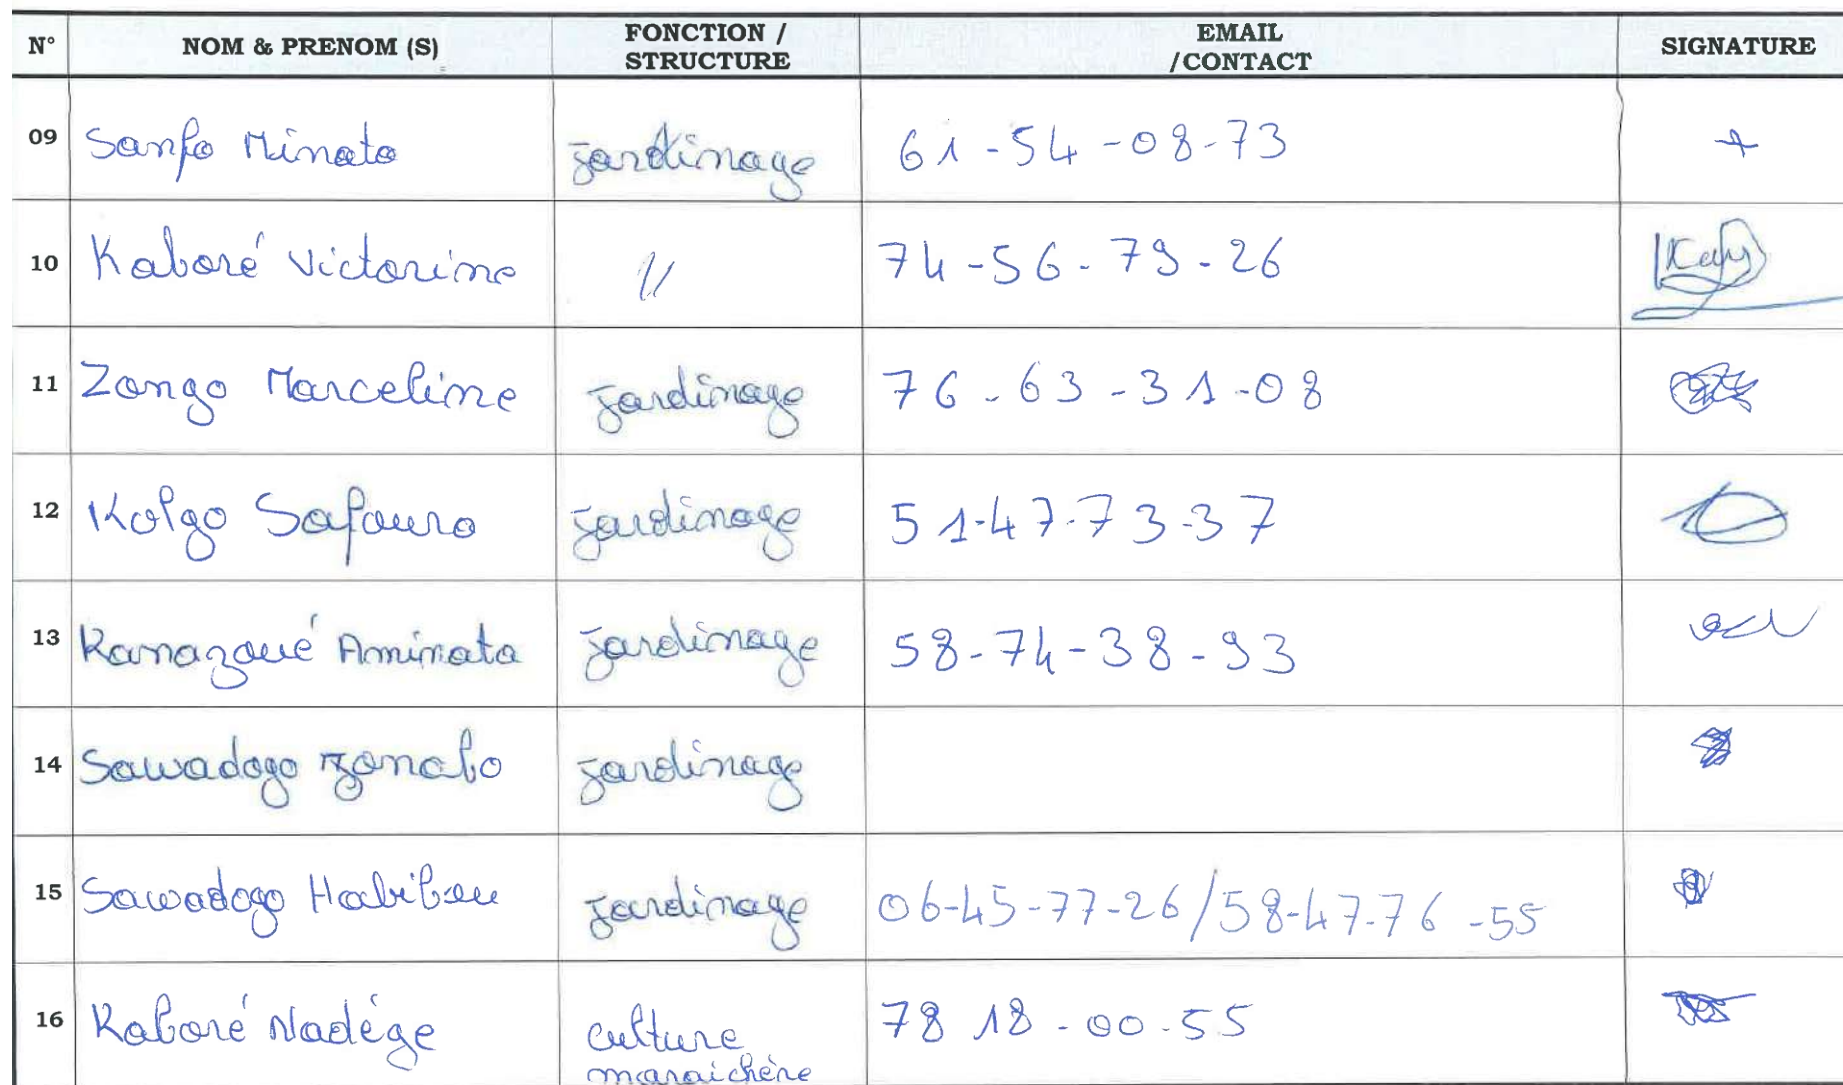 N° NOM & PRENOM (S) FONCTION / STRUCTURE EMAIL /CONTACT SIGNATURE
09 Sanfo Minata jardinage 61-54-08-73
10 Kaboré Victorine 11 74-56-79-26
11 Zongo Marceline jardinage 76-63-31-08
12 Kolgo Safoura jardinage 51-47-73-37
13 Kanazoué Aminata jardinage 58-74-38-93
14 Sawadogo jardinage
15 Sawadogo Habibou jardinage 06-45-77-26/58-47-76-55
16 Kaboré Nadége culture maraichère 78 18-00-55